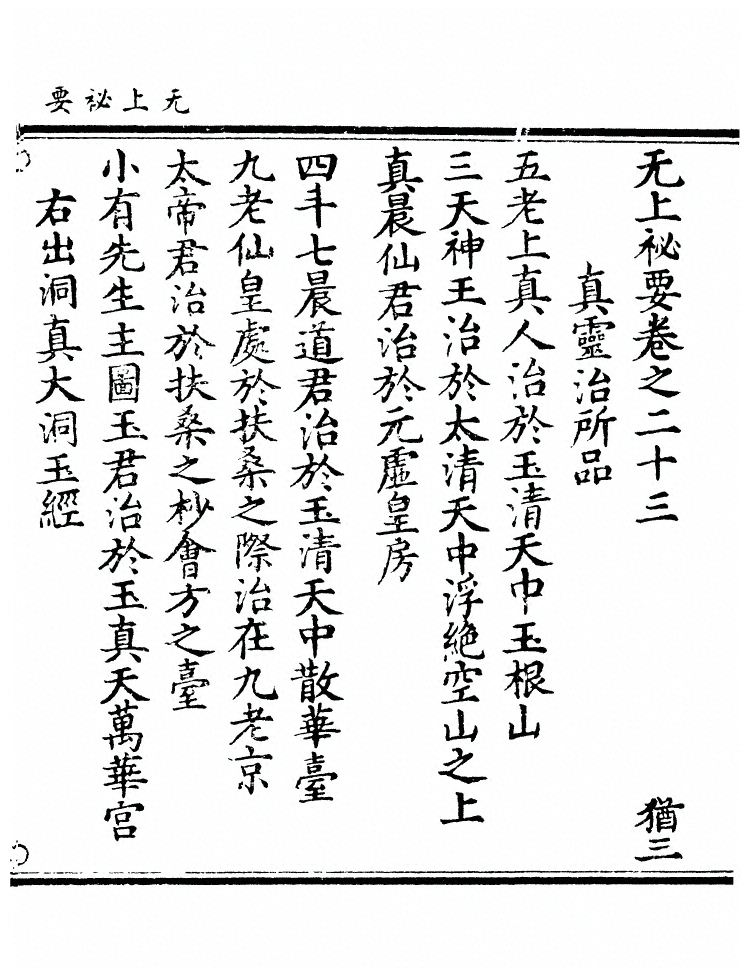 无上祕要
无上祕要卷之二十三 猶三
真靈治所品
五老上真人治於玉清天中玉根山
三天神王治於太清天中浮絶空山之上
真晨仙君治於元虛皇房
四斗七晨道君治於玉清天中散華臺
九老仙皇處於扶桑之際治在九老京
太帝君治於扶桑之杪會方之臺
小有先生主圖玉君治於玉真天萬華宮
右出洞真大洞玉經